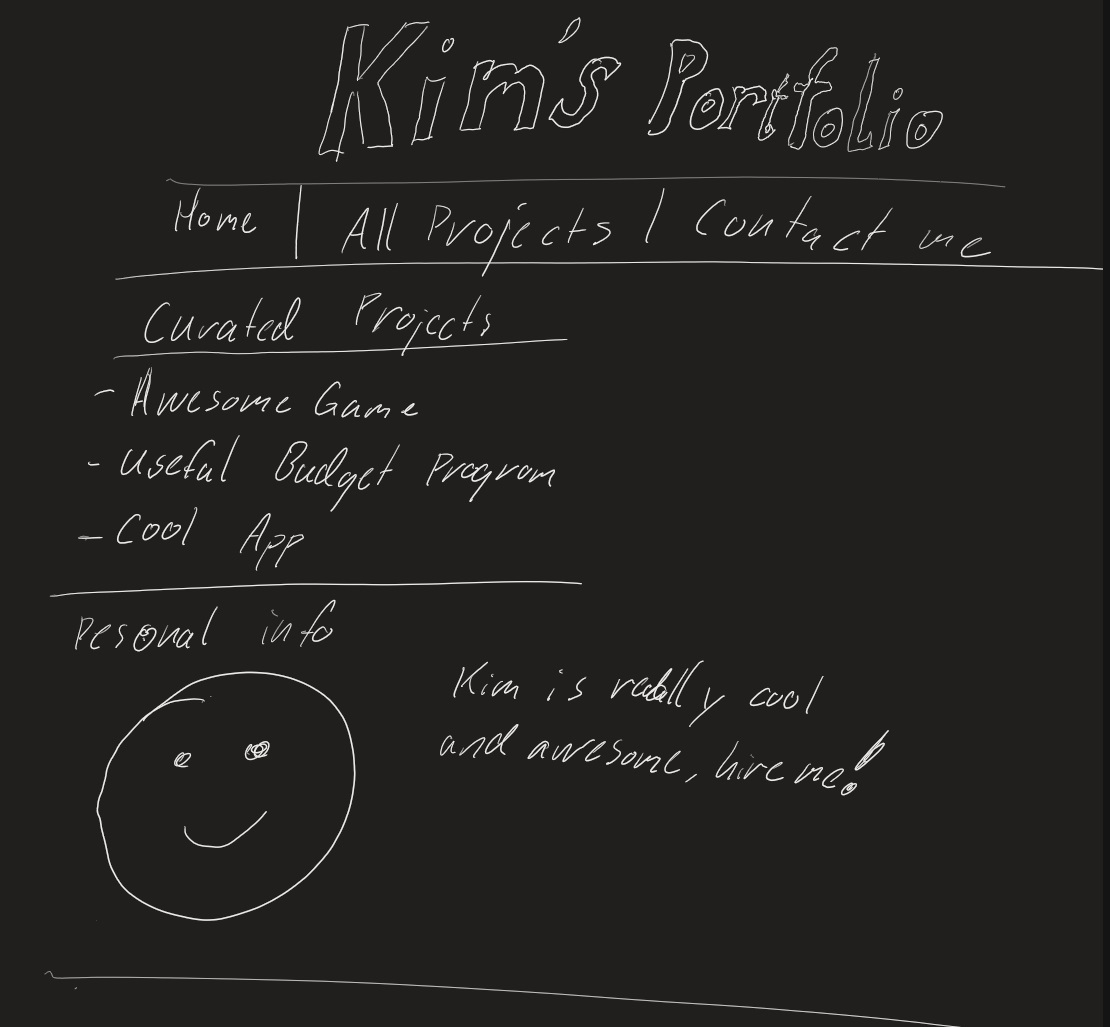 Kim's Portfolio
Home | All Projects | Contact me
Curated Projects
- Awesome Game
- Useful Budget Program
- Cool App
Pesonal info
Kim is really cool
and awesome, hire me!